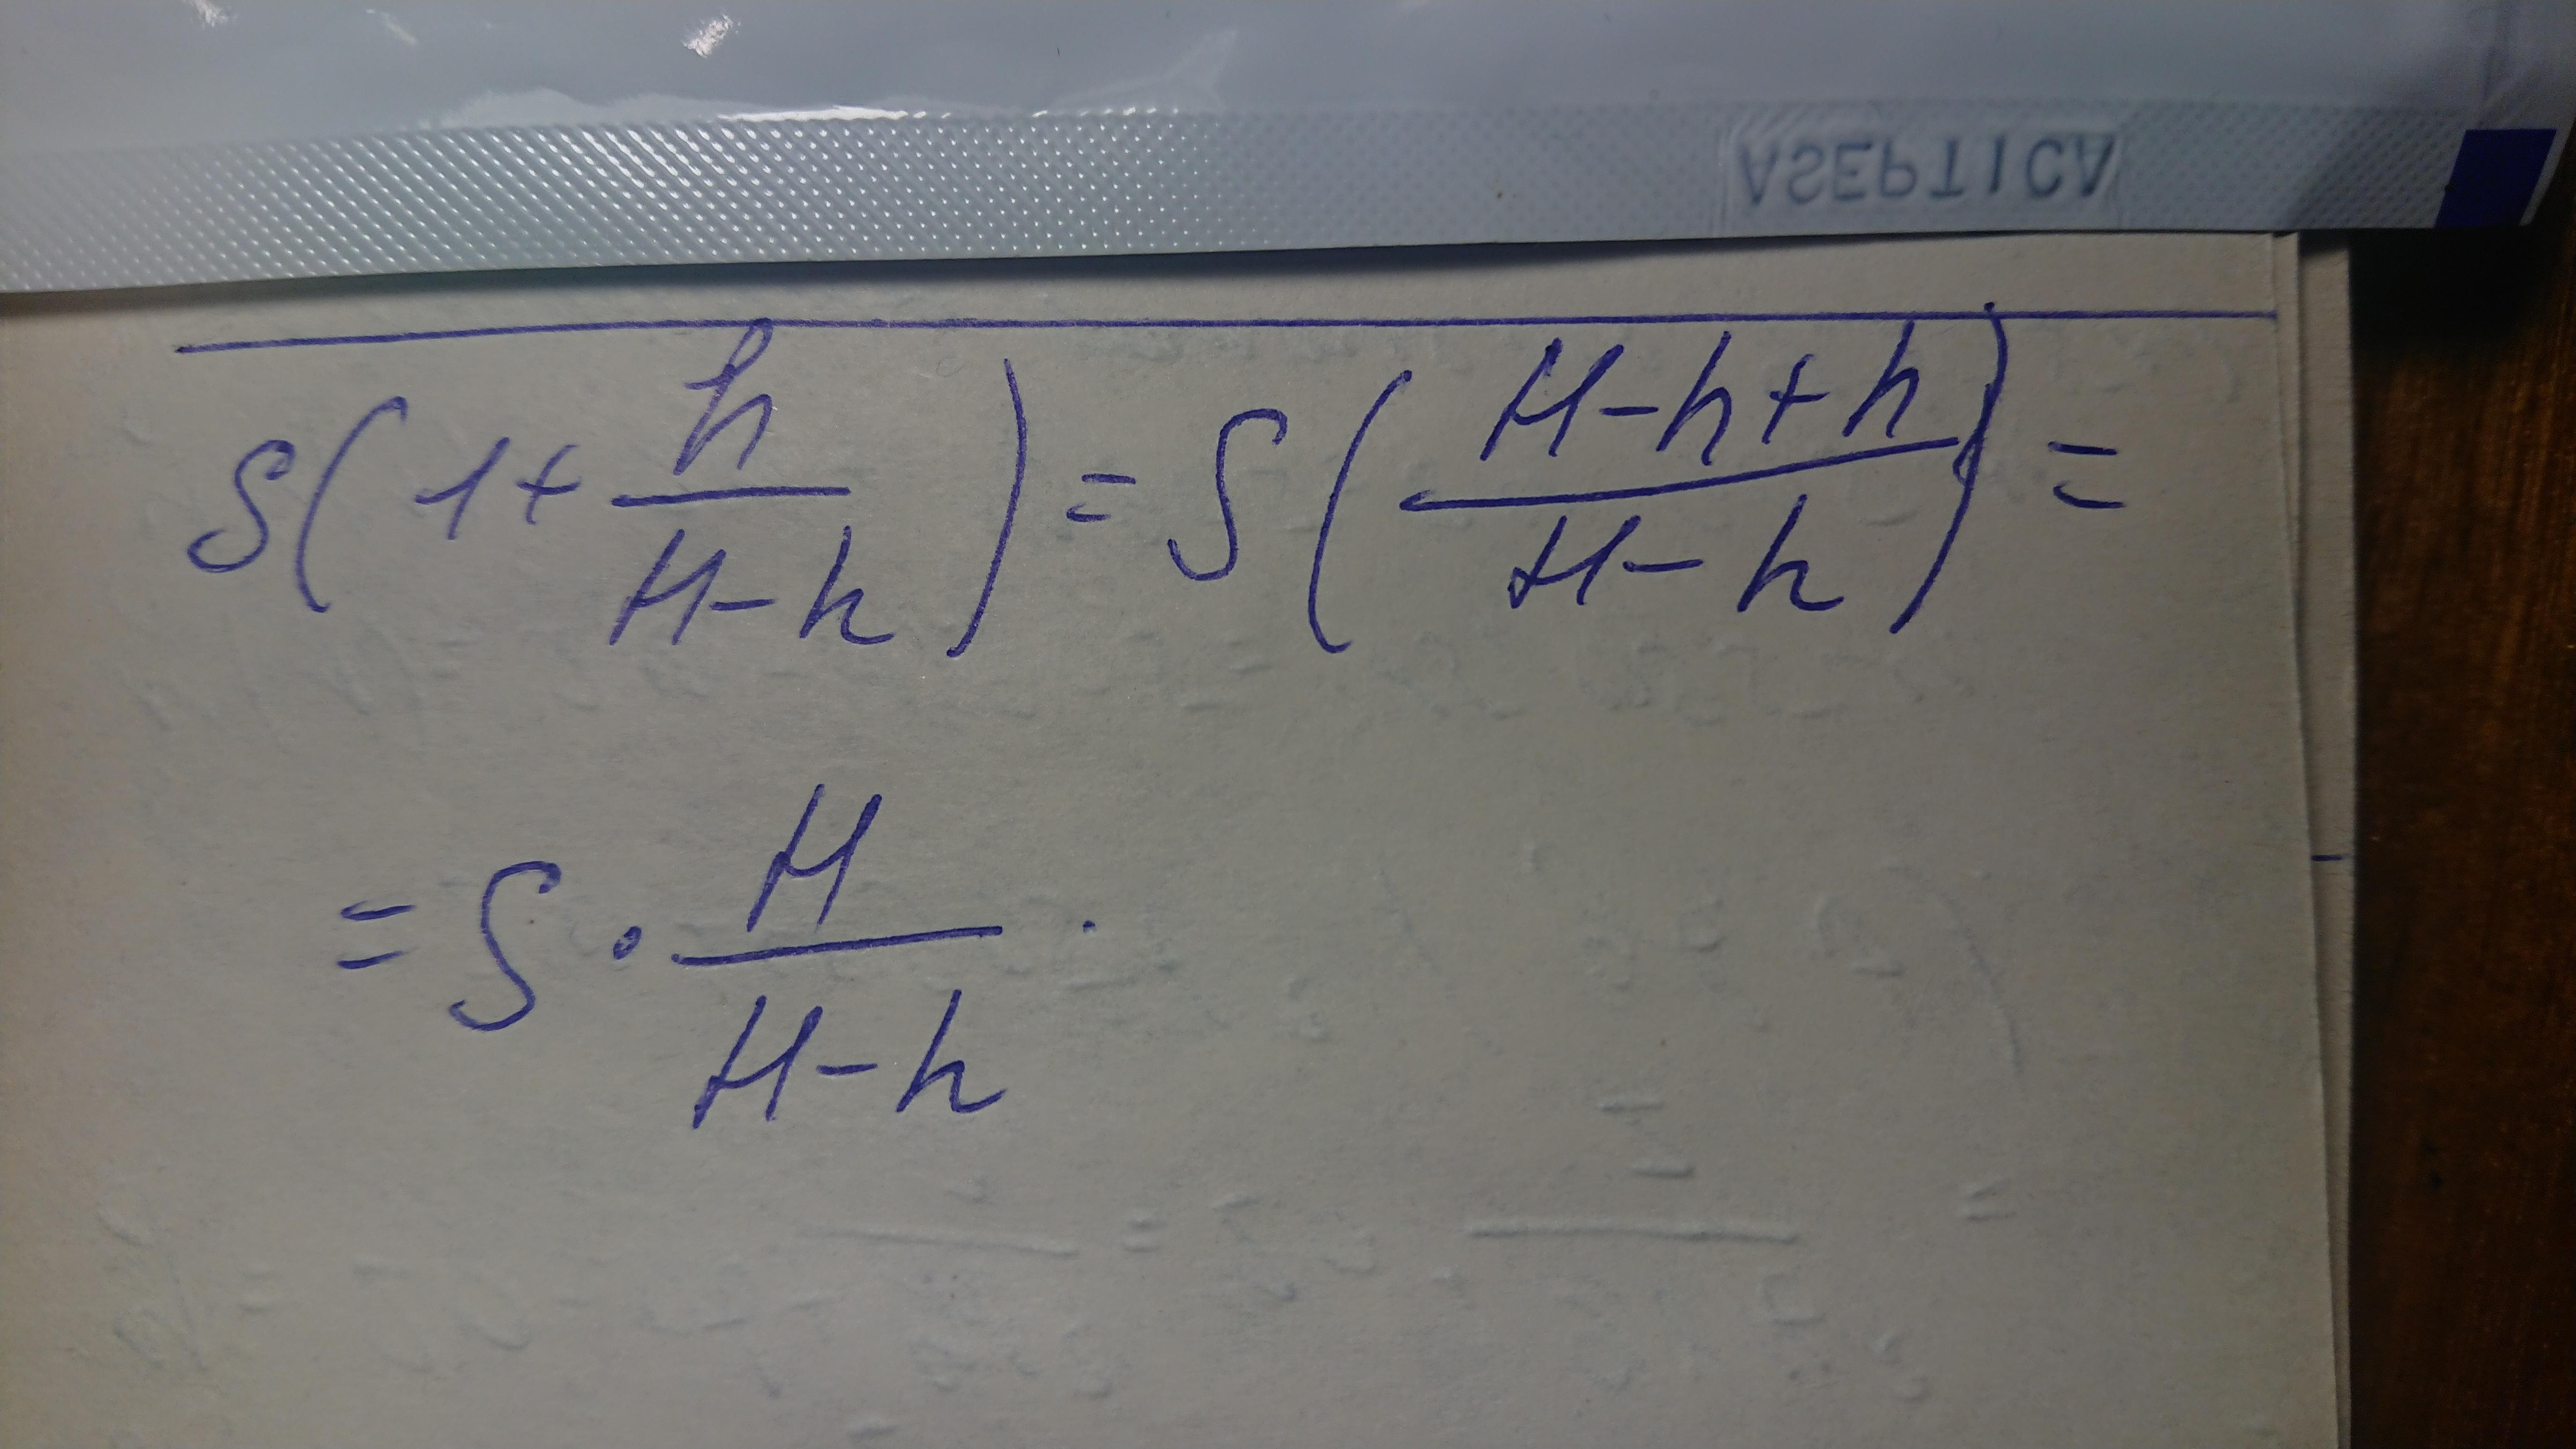 ASEPTICA
S(1+h/(H-h)) = S((H-h+h)/(H-h)) =
= S · H/(H-h) .